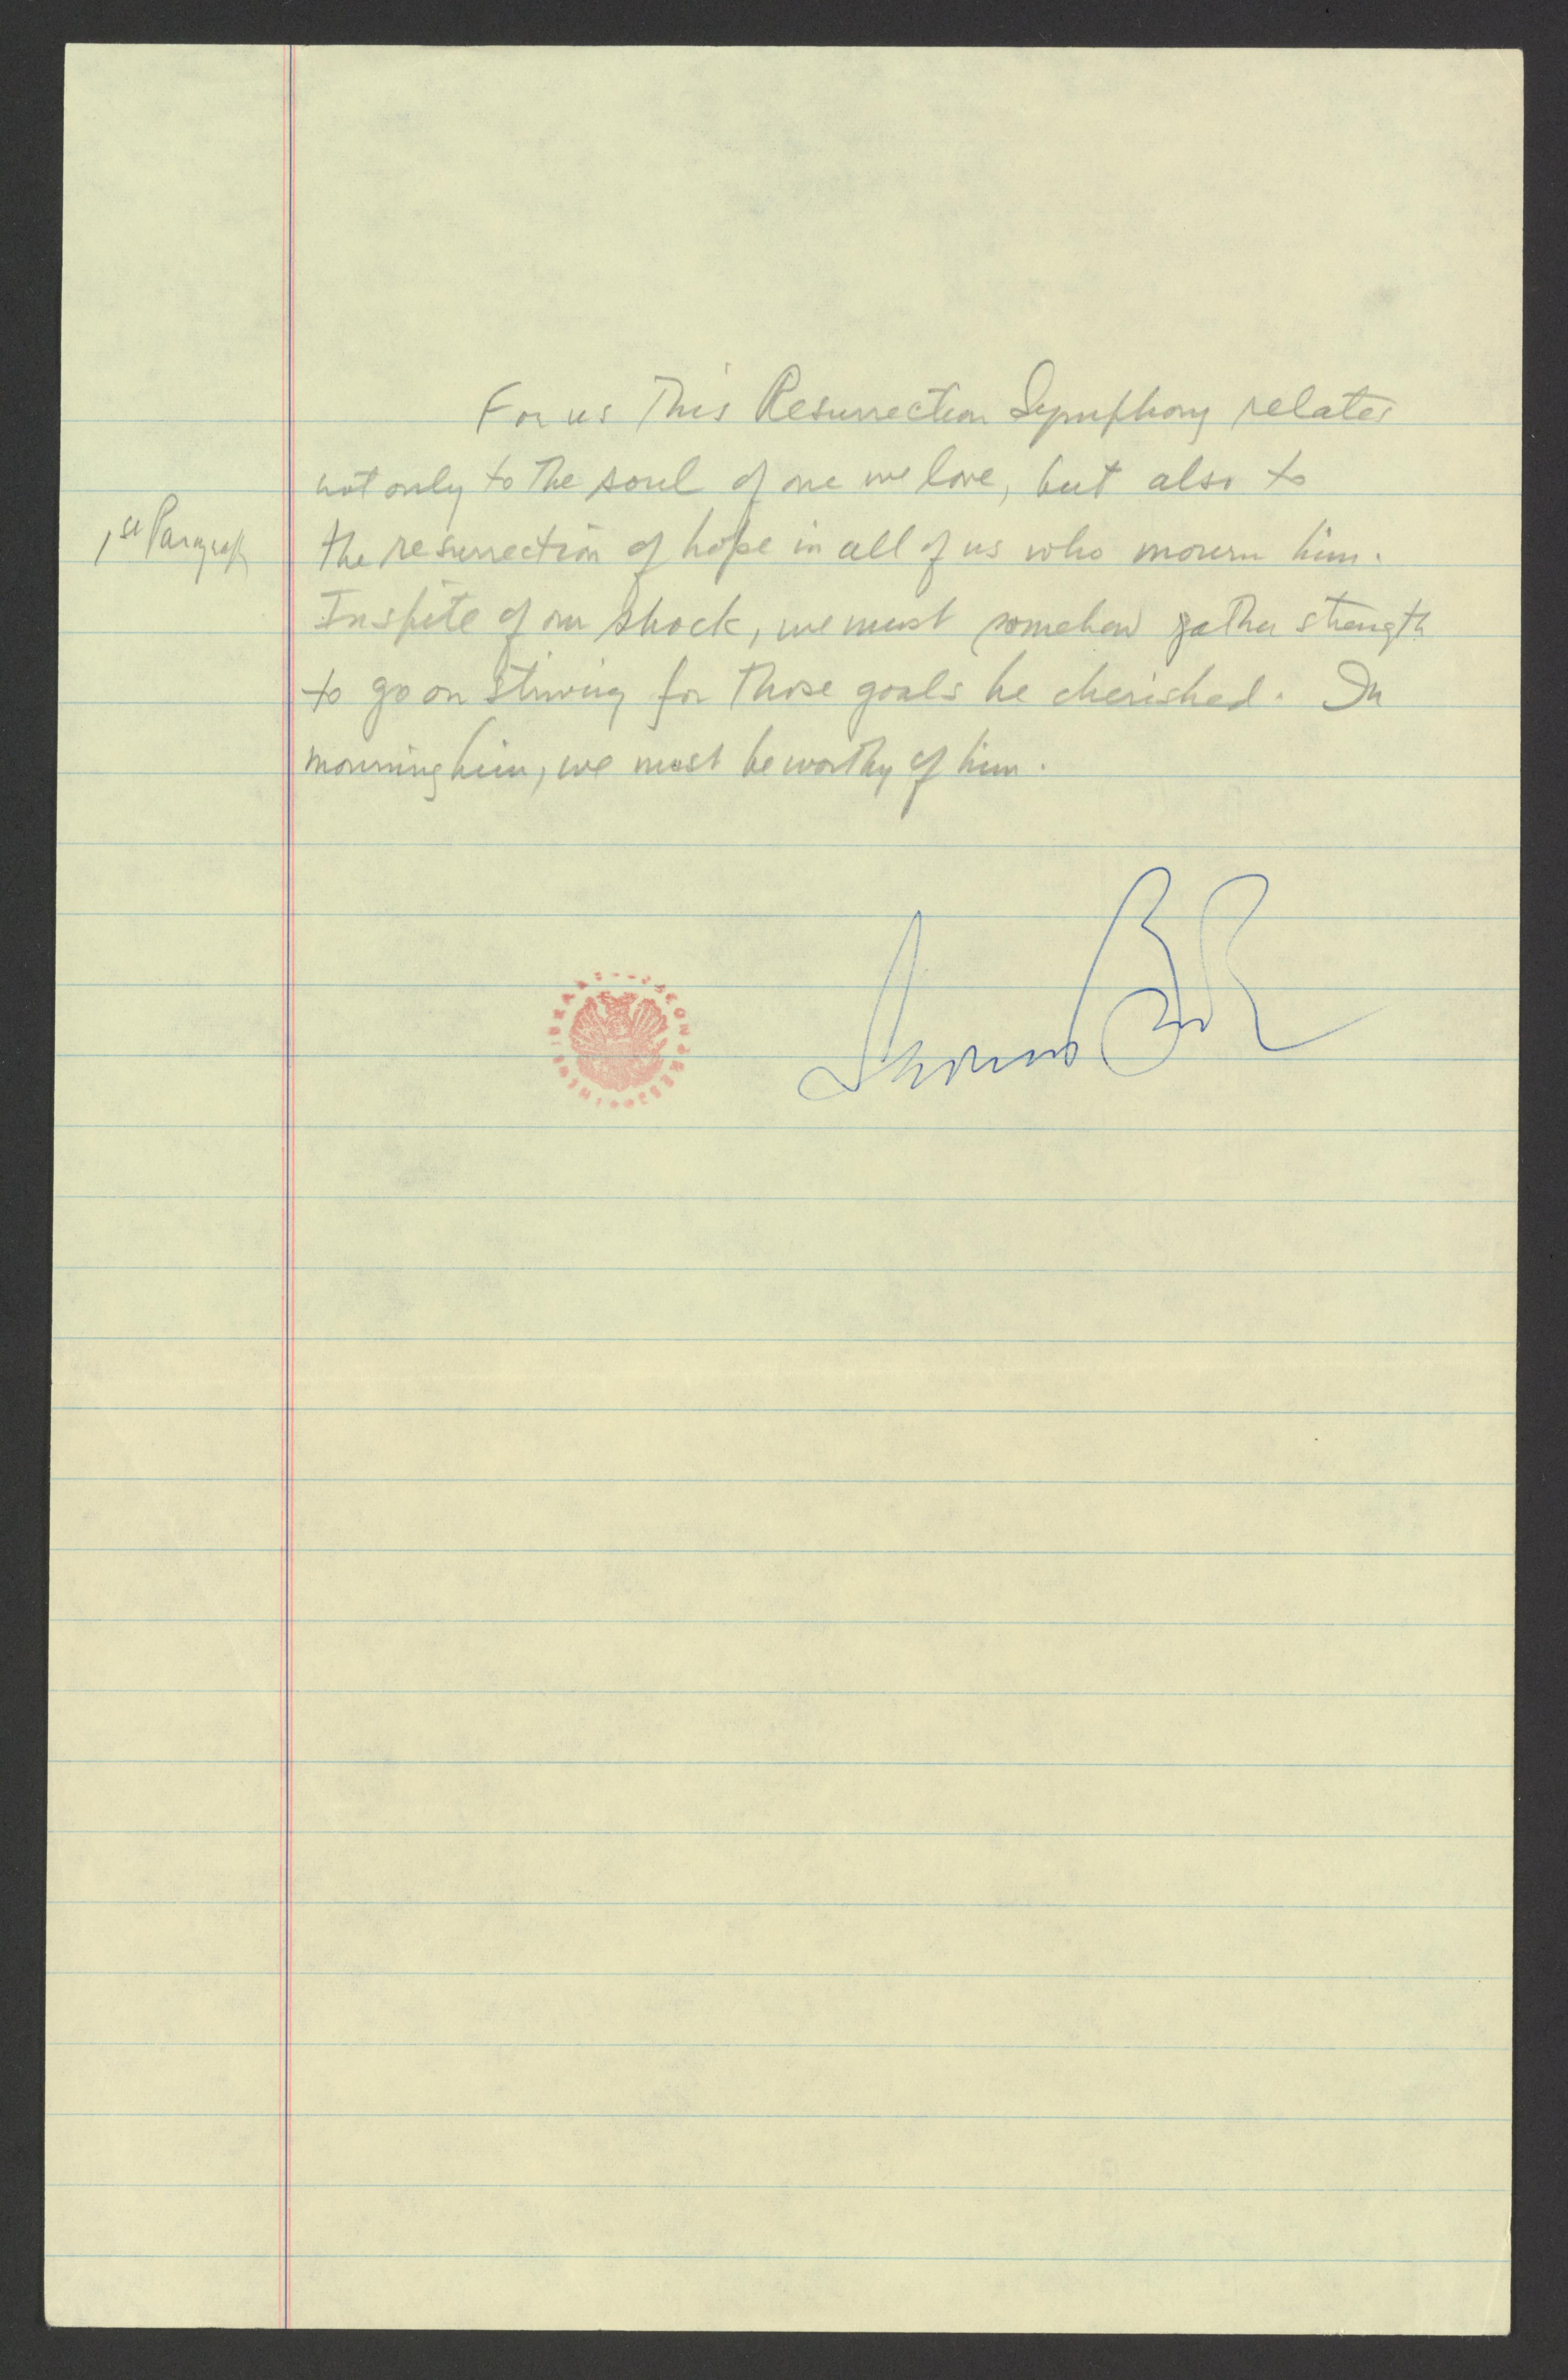 For us This Resurrection Symphony relates
not only to the soul of one we love, but also to
1st Paragraph
the resurrection of hope in all of us who mourn him.
Inspite of our shock, we must somehow gather strength
to go on striving for those goals he cherished. In
mourning him, we must be worthy of him.